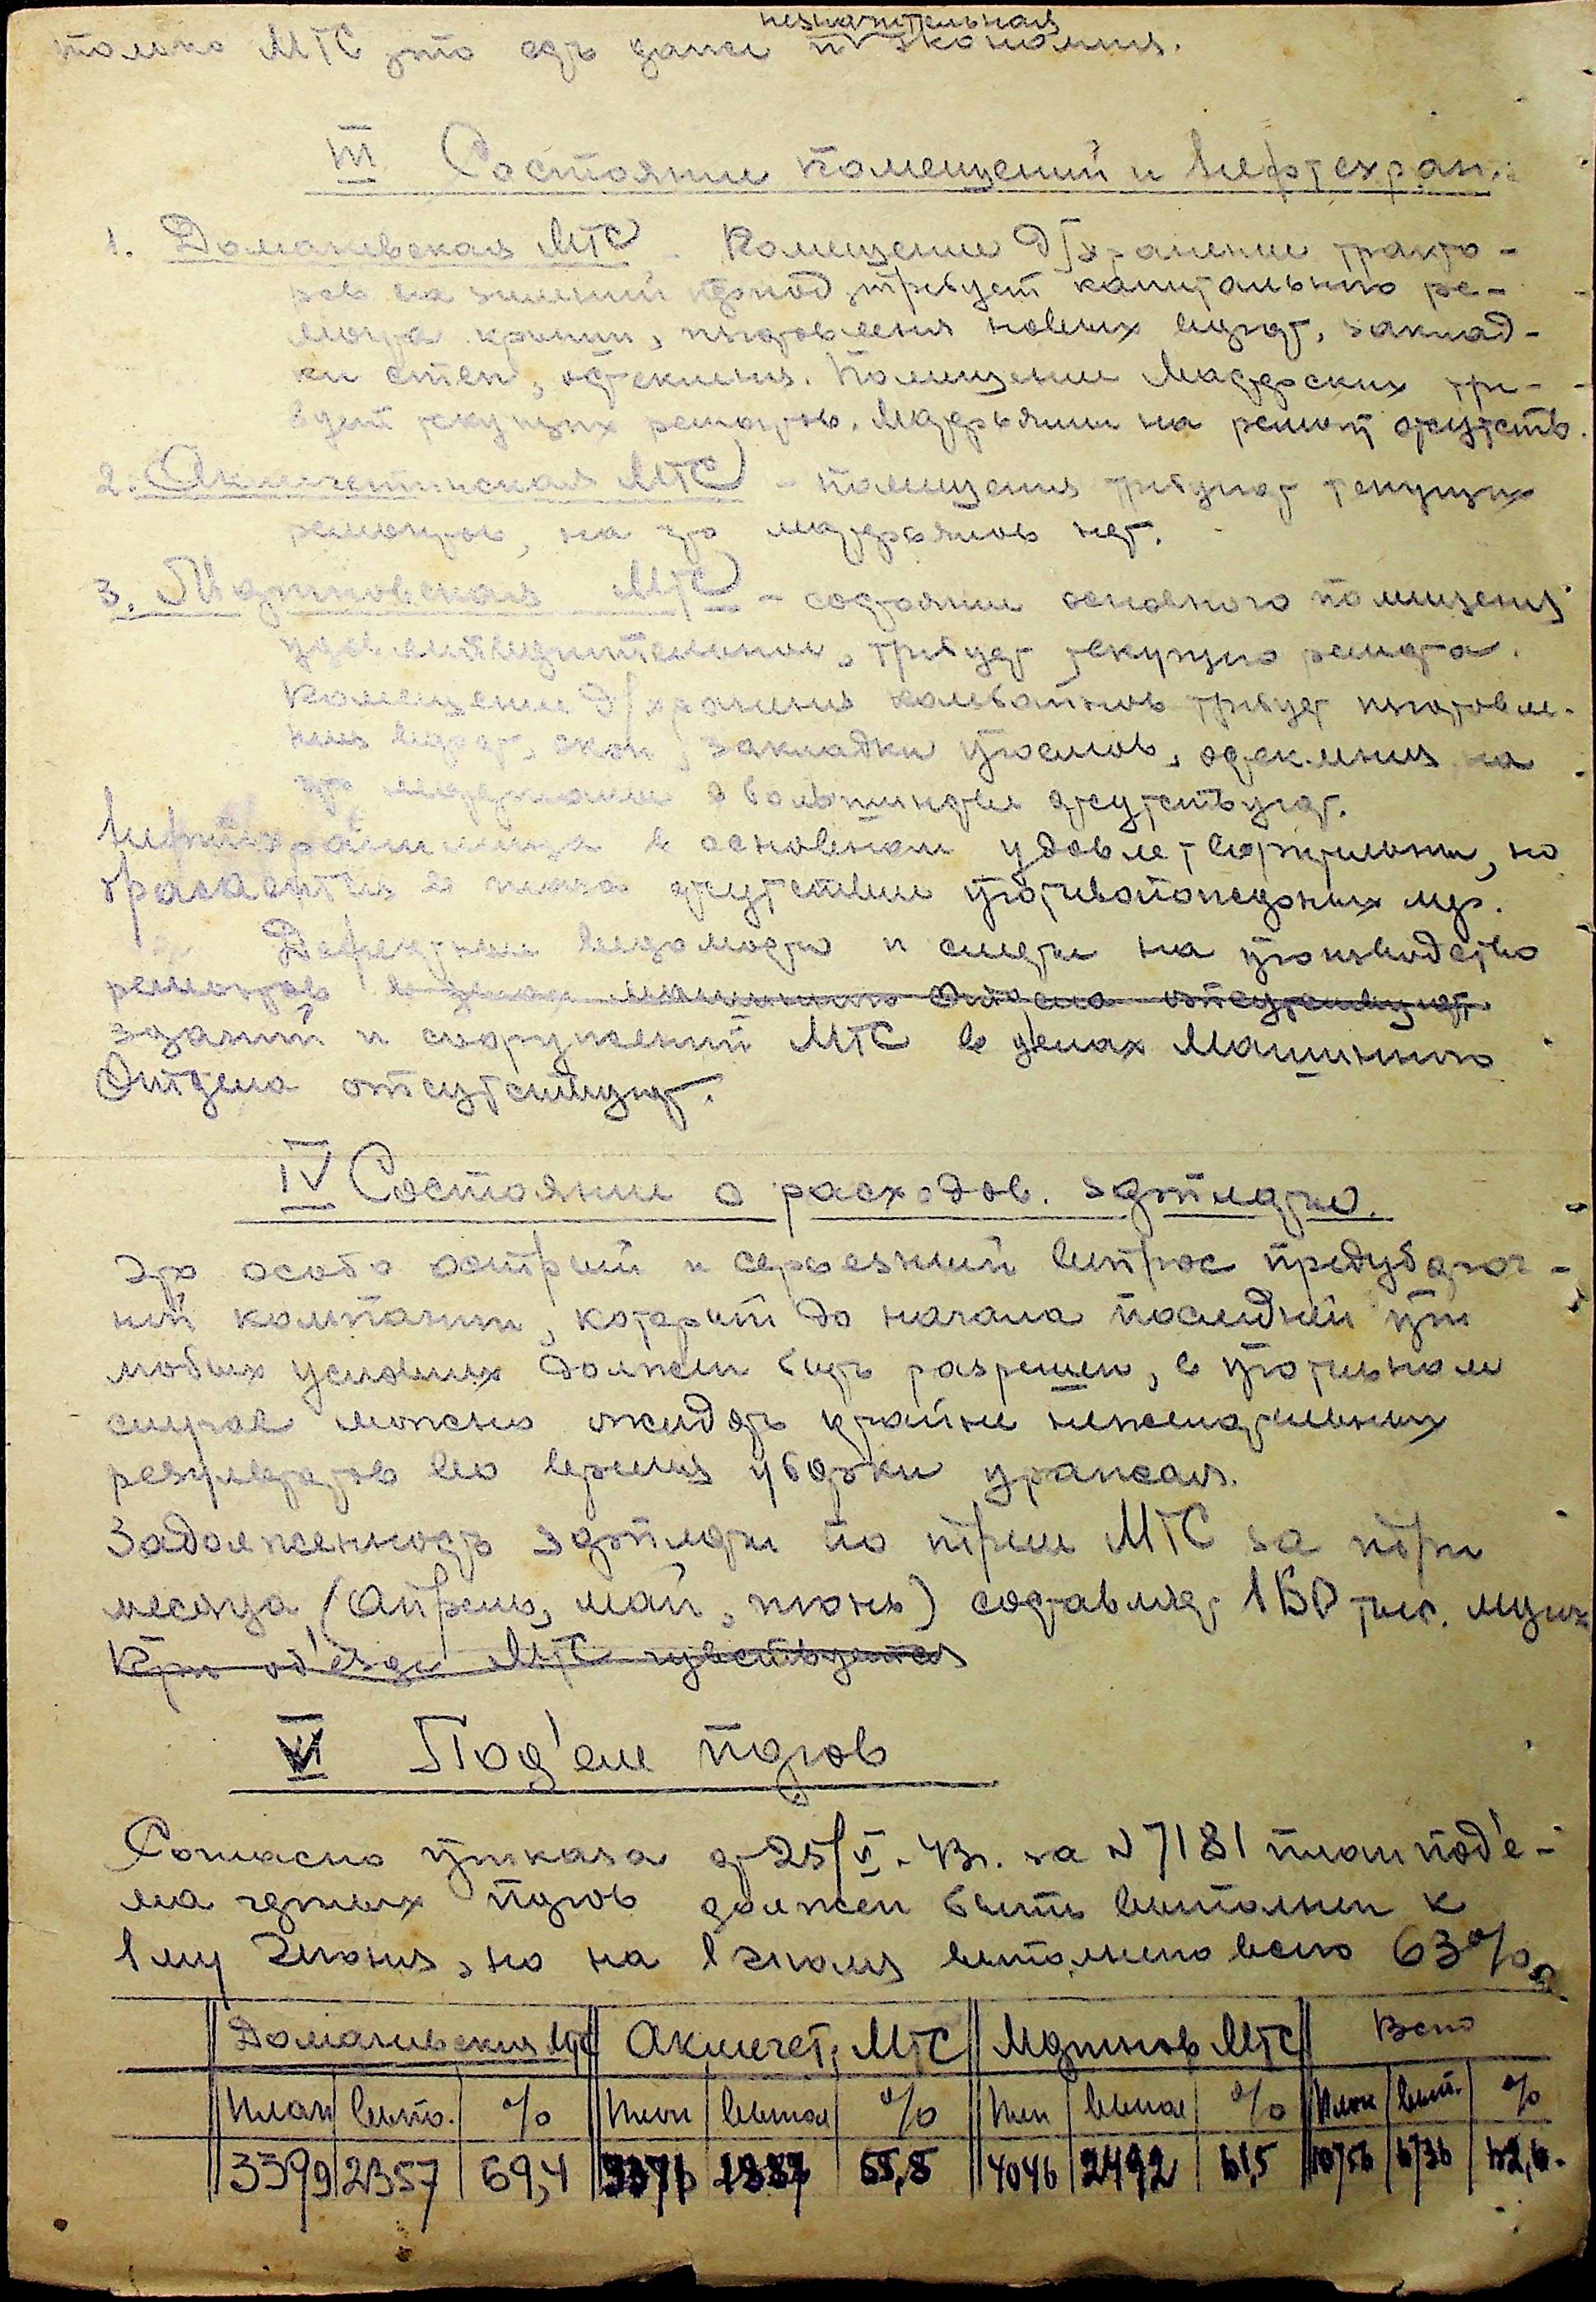 незначительная
только МТС это есть даже и экономия.
III Состояние помещений и нефтехран.
1. Доманевская МТС. Помещение д/хранение тракто-
ров на зимний период, требует капитального ре-
монта крыши, изготовления новых ворот, заклад-
ки стен, остекления. Помещение Мастерских тре-
бует текущих ремонтов. Матерьялы на ремонт отсутств.
2. Акмечетинская МТС - помещения требуют текущих
ремонтов, на это матерьялов нет.
3. Мартыновская МТС - состояние основного помещения
удовлетворительное, требует текущего ремонта.
Помещение д/хранения комбайнов требует изготовле-
ния ворот, окон, закладки проемов, остекления на
это матерьялы в большинстве отсутствуют.
Нефтехранилища в основном удовлетворительны, но
бросается в глаза отсутствие противопожарных мер.
Дефектные ведомости и сметы на производство
ремонтов в делах Машинного Отдела отсутствуют
зданий и сооружений МТС в делах Машинного
Отдела отсутствуют.
IV Состояние о расходов. зарплаты.
Это особо острый и серьезный вопрос предуборч-
ной компании, который до начала последней при
любых условиях должен быть разрешен, в противном
случае можно ожидать крайне нежелательных
результатов во время уборки урожая.
Задолженность зарплаты по трем МТС за три
месяца (Апрель, май, июнь) составляет 180 тыс. марок
При об'езде МТС чувствуется
VI Под'ем паров
Согласно приказа от 25/V-43г. за N 7181 план под'е-
ма черных паров должен быть выполнен к
1му Июня, но на 1 июля выполнено всего 63%.
Доманевская МТС Акмечет. МТС Мартынов МТС Всего
План выпо. % План выпол % План выпол % План вып. %
3399 2357 69,4 4046 2492 61,5 10756 6736 62,6.